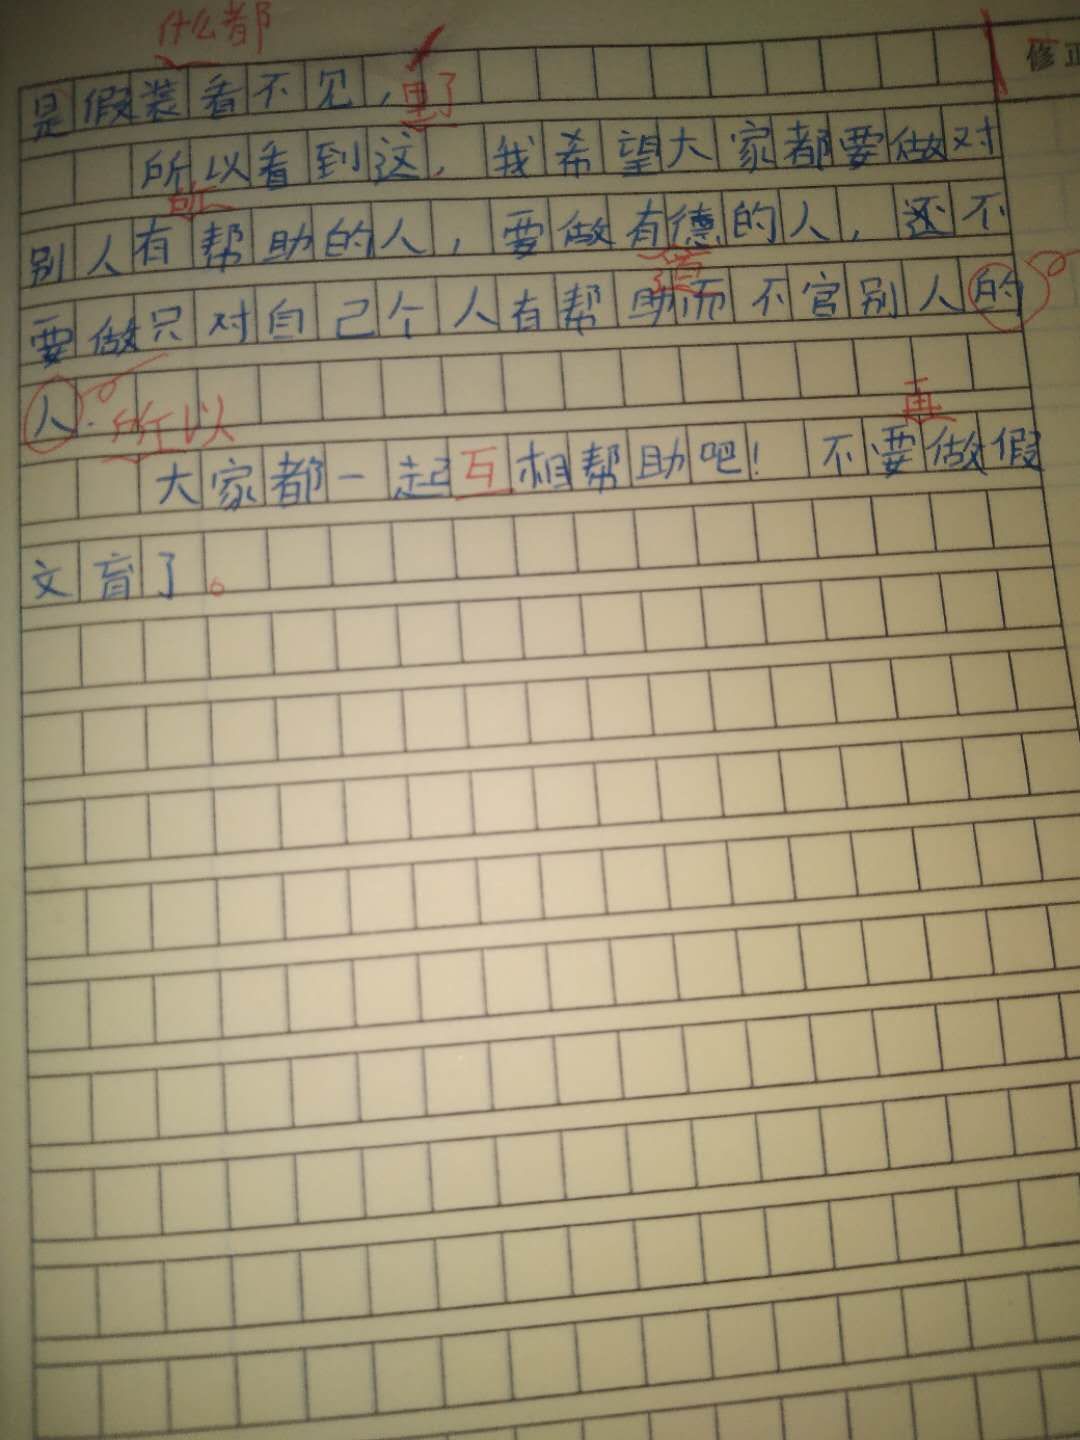 什么都
是假装看不见,
了
修正
所以看到这,我希望大家都要做对
所
别人有帮助的人,要做有德的人,还不
道
要做只对自己个人有帮助而不官别人的
人.
所以
再
大家都一起互相帮助吧!不要做假
文盲了。